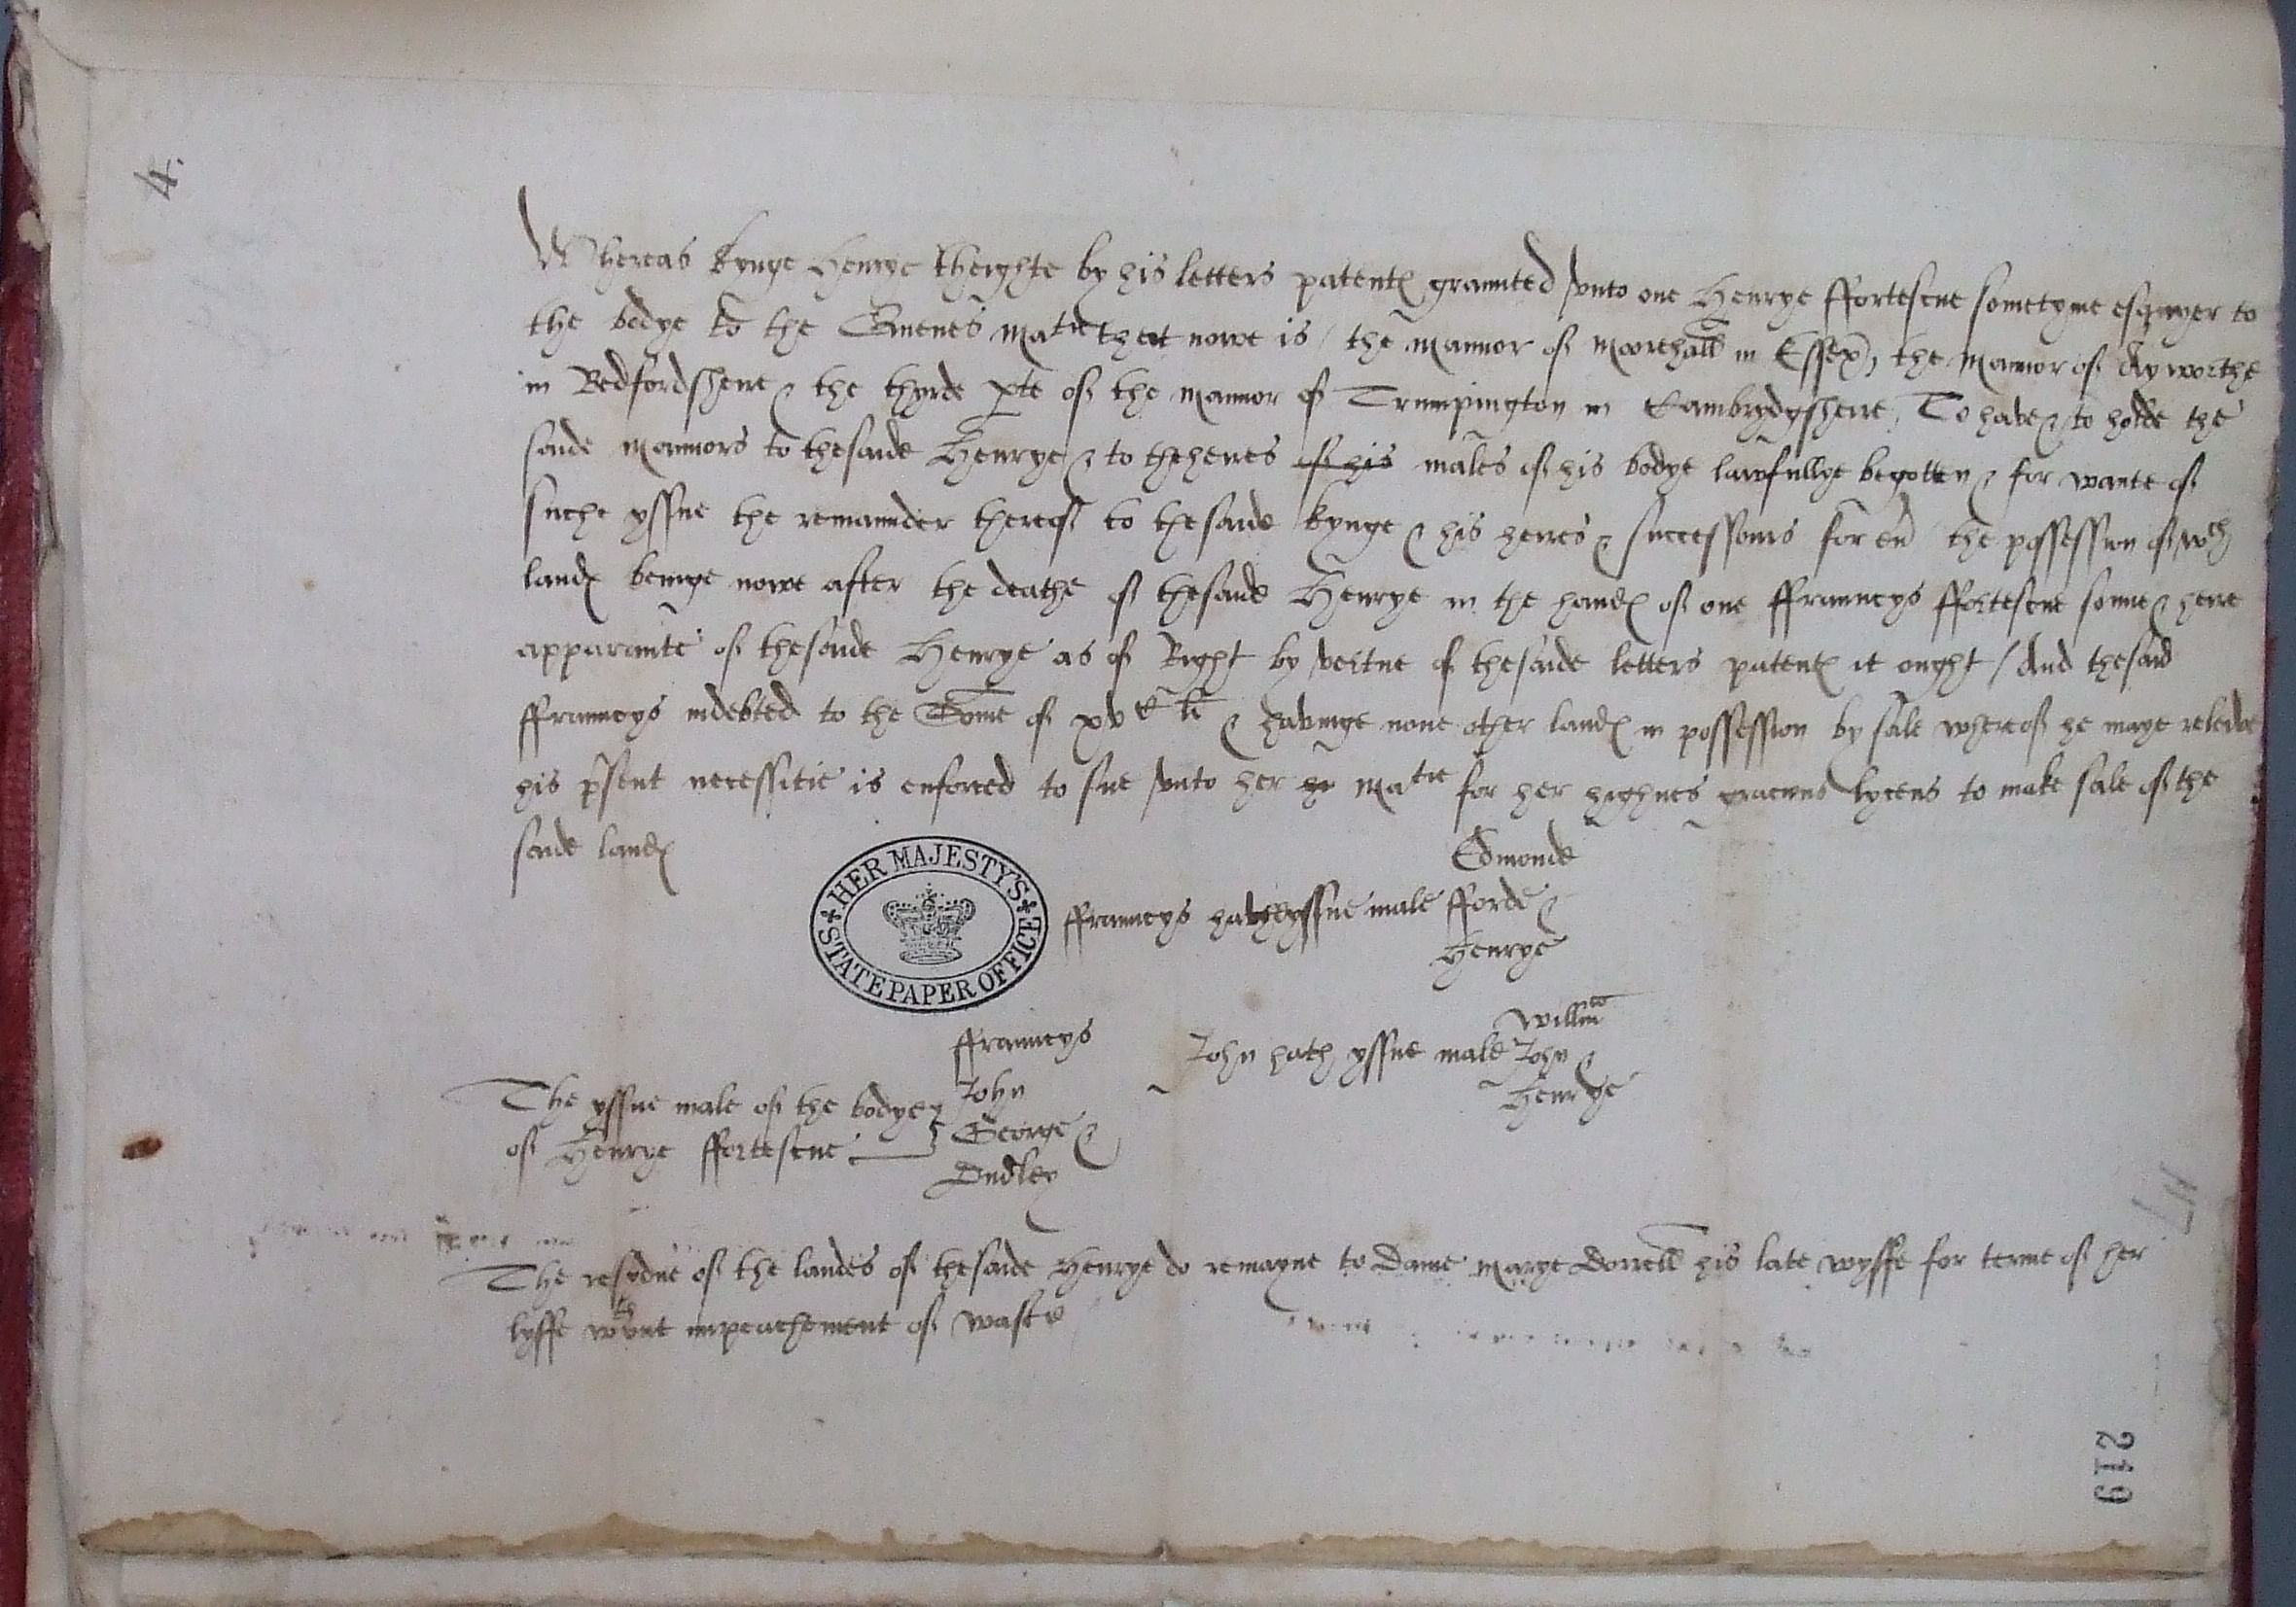 4.
Whereas kynge Henrye theighte by his letters patent℮ graunted vnto one Henrye ffortescue sometyme esquyer to
the bodye to the Quenes Matie that nowe is / the mannor of Moorehall in Essex, the mannor of Ayworthe
in Bedfordshere & the thyrde pte of the mannor of Trumpington in Cambrydgshere, To have & to holde the
saide mannors to thesaide Henrye & to theheires of his males of his bodye lawfullye begotten & for wante of
suche yssue the remaunder thereof to thesaide kynge & his heires & successours for eũ the possession of wch
land℮ beinge nowe after the deathe of thesaide Henrye in the hand℮ of one ffraunceys ffortescue sonne & heire
apparaunte of thesaide Henrye as of Right by vertue of thesaide letters patent℮ it ought / And thesaid
ffraunceys indebted to the Some of xvC li & havinge none other land℮ in possession by sale whereof he maye releive
his p̃sent necessitie is enforced to sue vnto her hi Matie for her highnes gracious lycens to make sale of the
saide land℮
HER MAJESTY'S STATE PAPER OFFICE
Edmonde
ffraunceys hathe yssue male fforde &
Henrye
Willm̃
ffraunceys John hath yssue male John &
John Henrye
The yssue male of the bodye
of Henrye ffortescue George &
Dudley
The resydue of the landes of thesaide Henrye do remayne to Dame Marye Dorrell his late wyffe for terme of her
lyffe wthout impeachement of waste
77
219